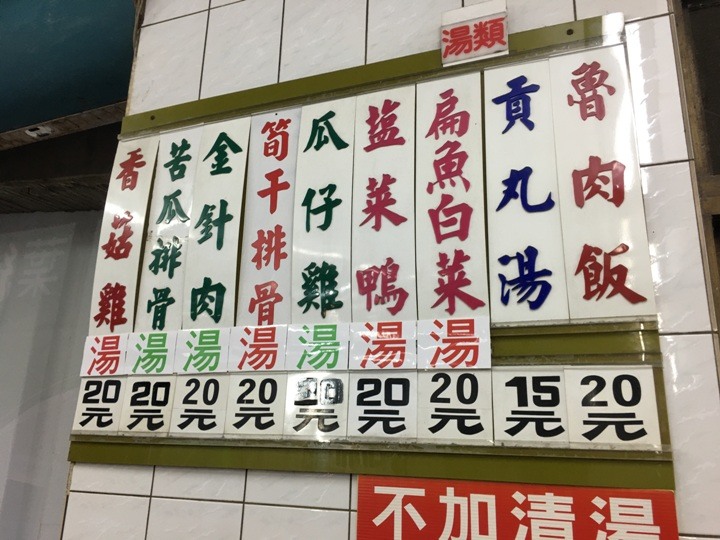 湯類
魯肉飯
20元
貢丸湯
15元
扁魚白菜湯
20元
盐菜鴨湯
20元
瓜仔雞湯
元
筍干排骨湯
20元
金針肉湯
20元
苦瓜排骨湯
20元
香菇雞湯
20元
不加清湯